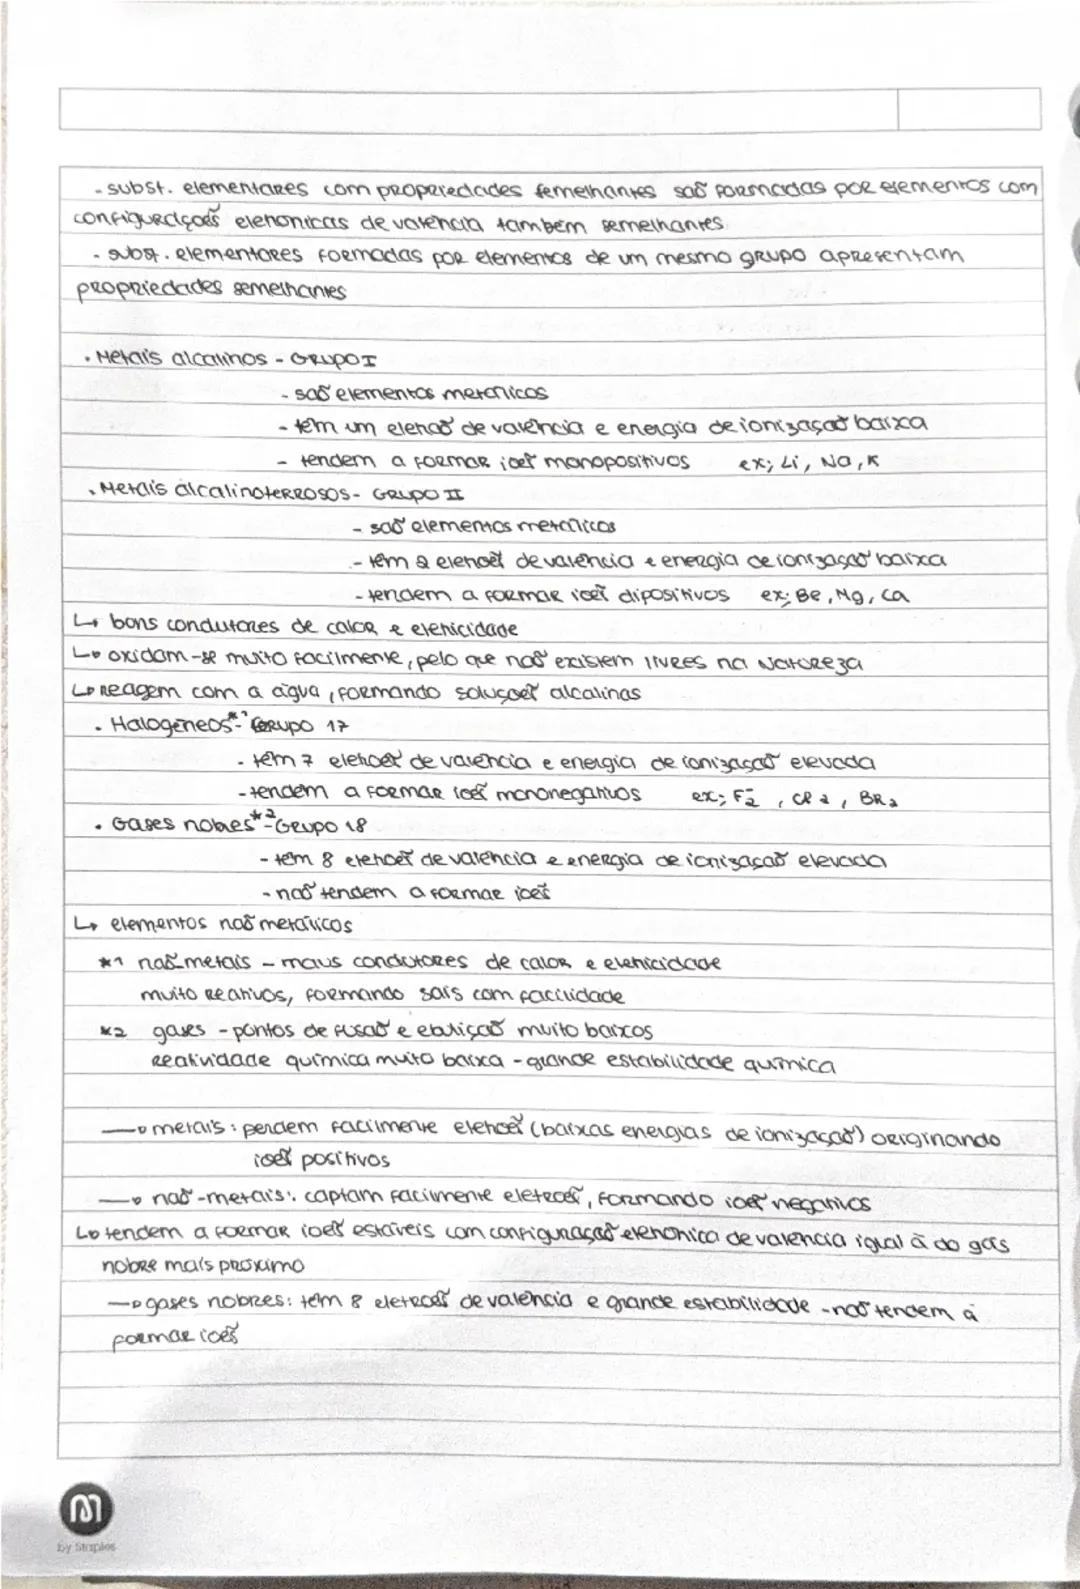 - subst. elementares com propriedades semelhantes são formadas por elementos com
configurações eletrónicas de valência também semelhantes
- subst. elementares formadas por elementos de um mesmo grupo apresentam
propriedades semelhantes
• Metais alcalinos - GRUPO I
- são elementos metálicos
- têm um eletrão de valência e energia de ionização baixa
- tendem a formar iões monopositivos ex; Li, Na, K
• Metais alcalinoterrosos - GRUPO II
- são elementos metálicos
- têm 2 eletrões de valência e energia de ionização baixa
- tendem a formar iões dipositivos ex: Be, Mg, Ca
↳ bons condutores de calor e eletricidade
↳ oxidam-se muito facilmente, pelo que não existem livres na Natureza
↳ reagem com a água, formando soluções alcalinas
• Halogéneos*1 - Grupo 17
- têm 7 eletrões de valência e energia de ionização elevada
- tendem a formar iões mononegativos ex; F2, Cl2, Br2
• Gases nobres*2 - Grupo 18
- têm 8 eletrões de valência e energia de ionização elevada
- não tendem a formar iões
↳ elementos não metálicos
*1 não-metais - maus condutores de calor e eletricidade
muito reativos, formando sais com facilidade
*2 gases - pontos de fusão e ebulição muito baixos
reatividade química muito baixa - grande estabilidade química
→ metais: perdem facilmente eletrões (baixas energias de ionização) originando
iões positivos
→ não-metais: captam facilmente eletrões, formando iões negativos
↳ tendem a formar iões estáveis com configuração eletrónica de valência igual à do gás
nobre mais próximo
→ gases nobres: têm 8 eletrões de valência e grande estabilidade - não tendem a
formar iões
M
by Staples